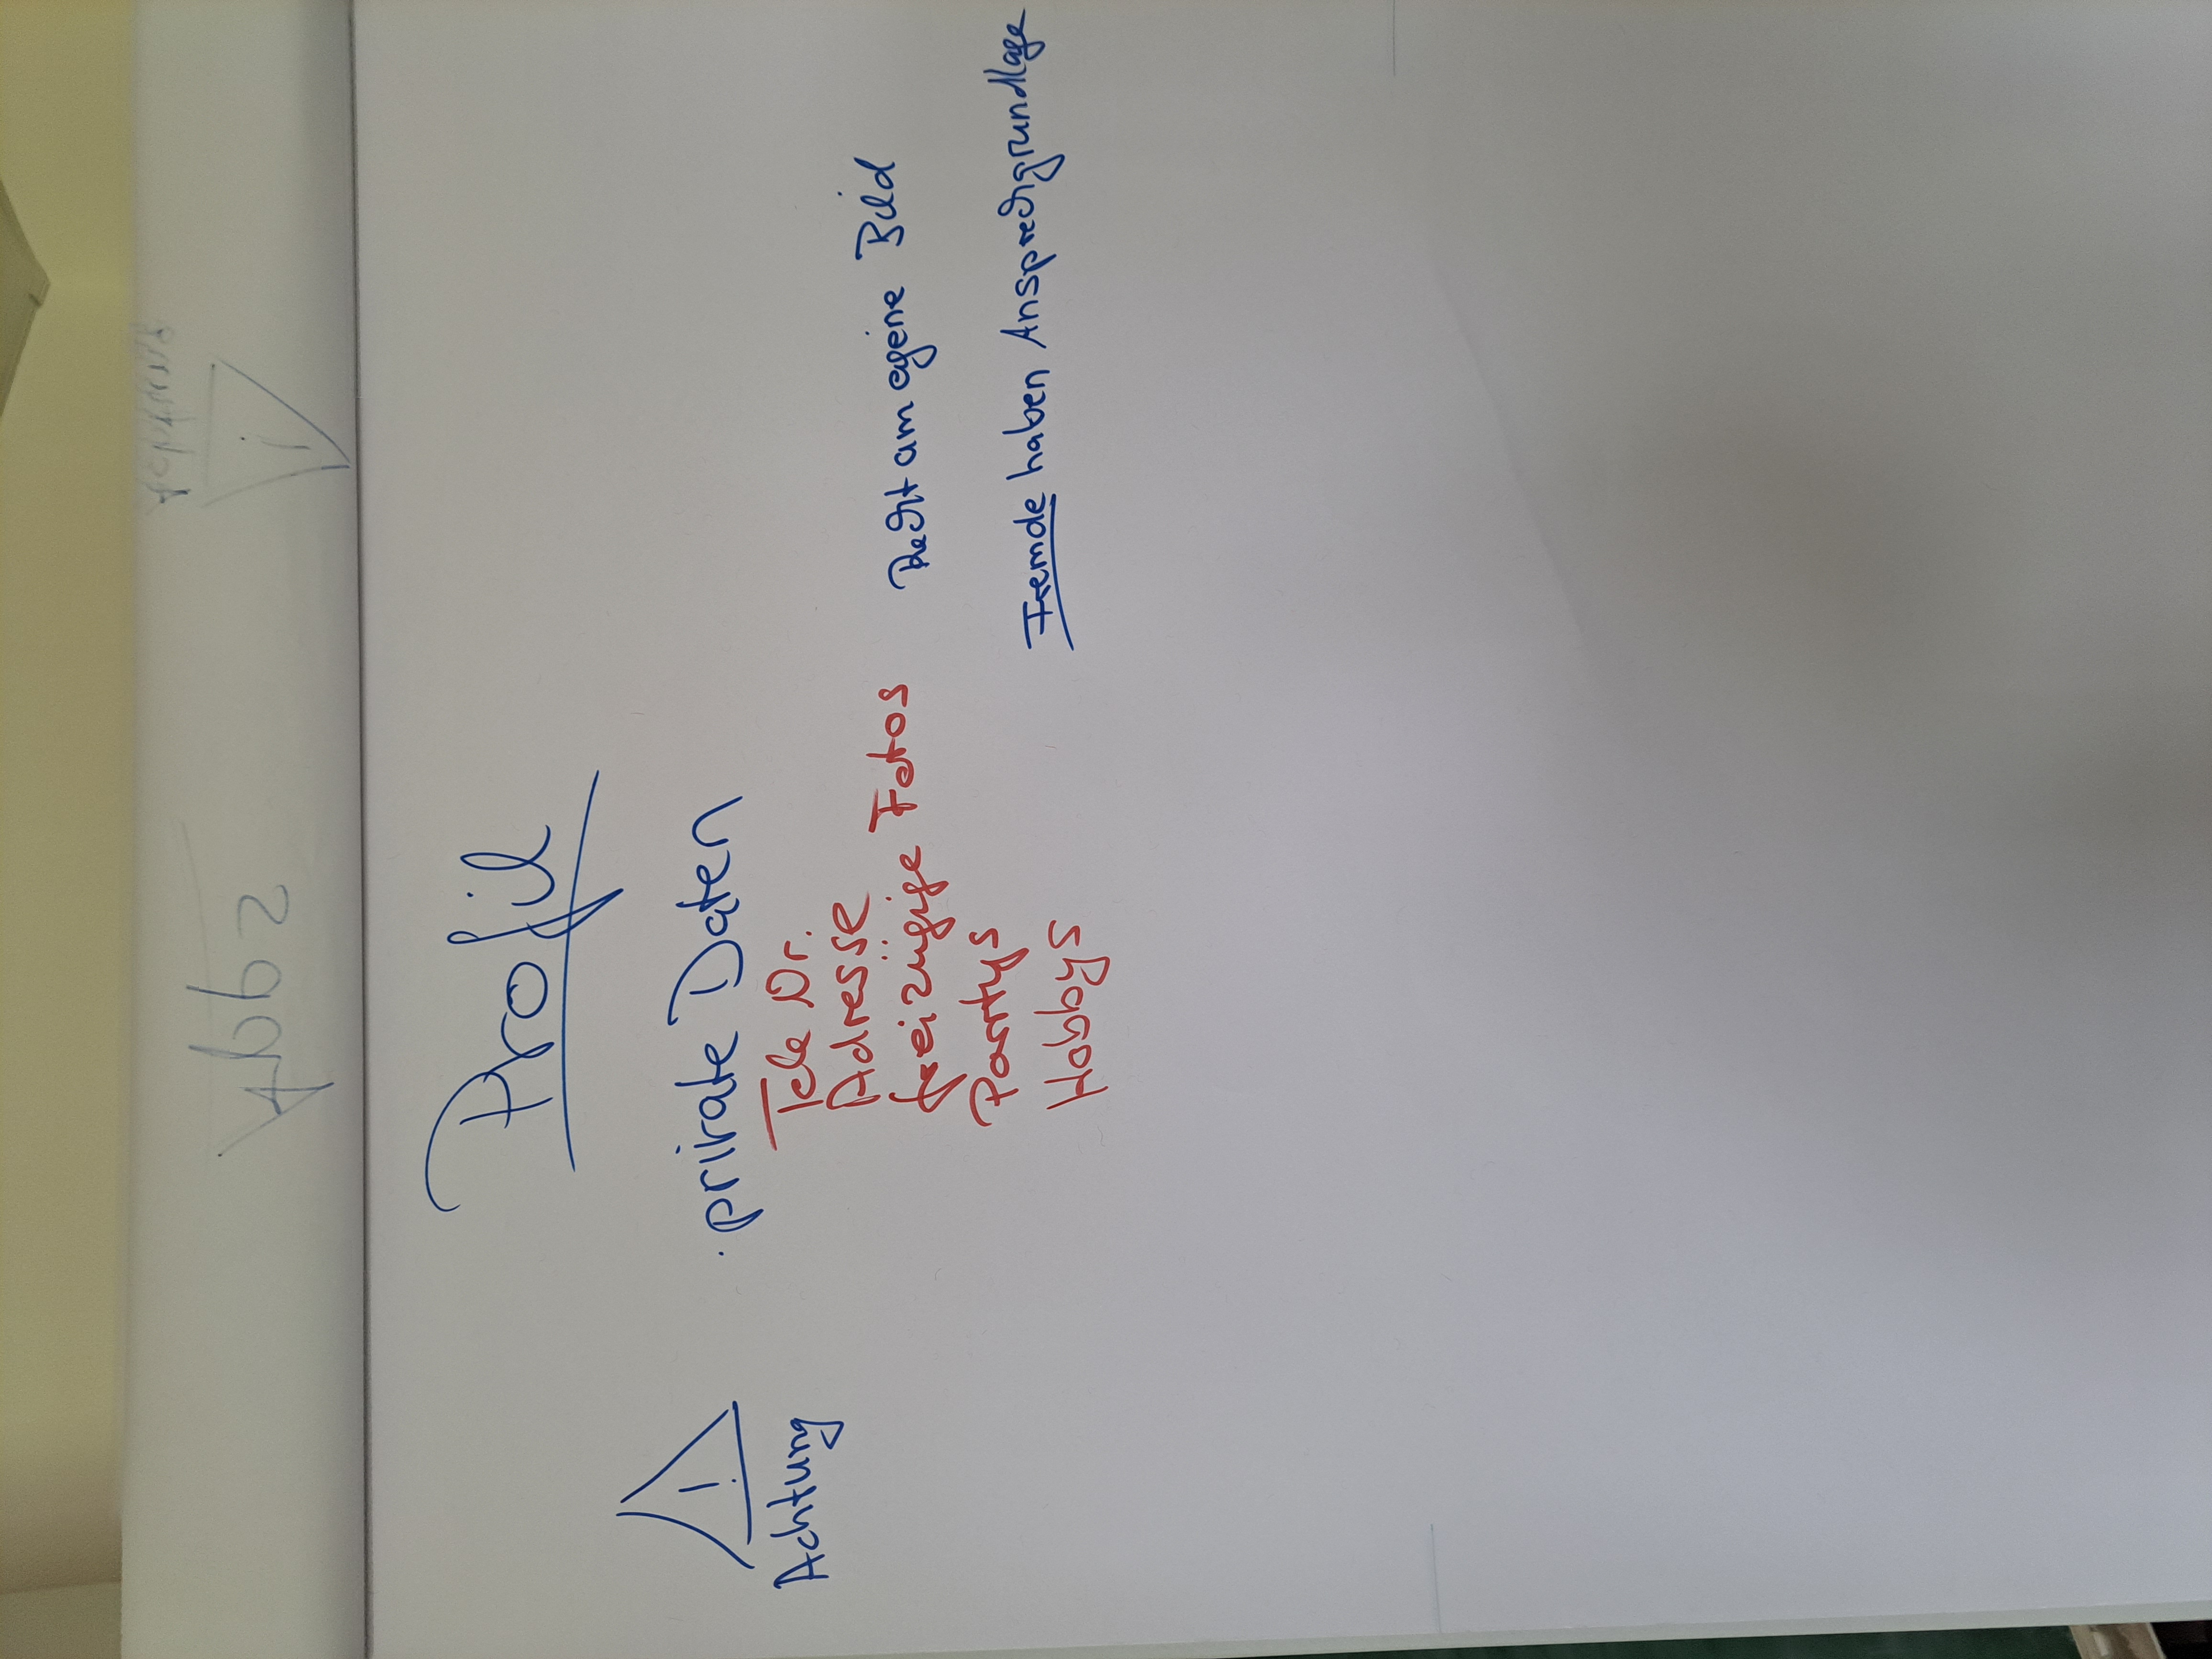 Profil
Achtung
· private Daten
Tele Nr.
Adresse
freizügige Fotos Recht am egene Bild
Partys
Fremde haben Ansprechgrundlage
Hobbys